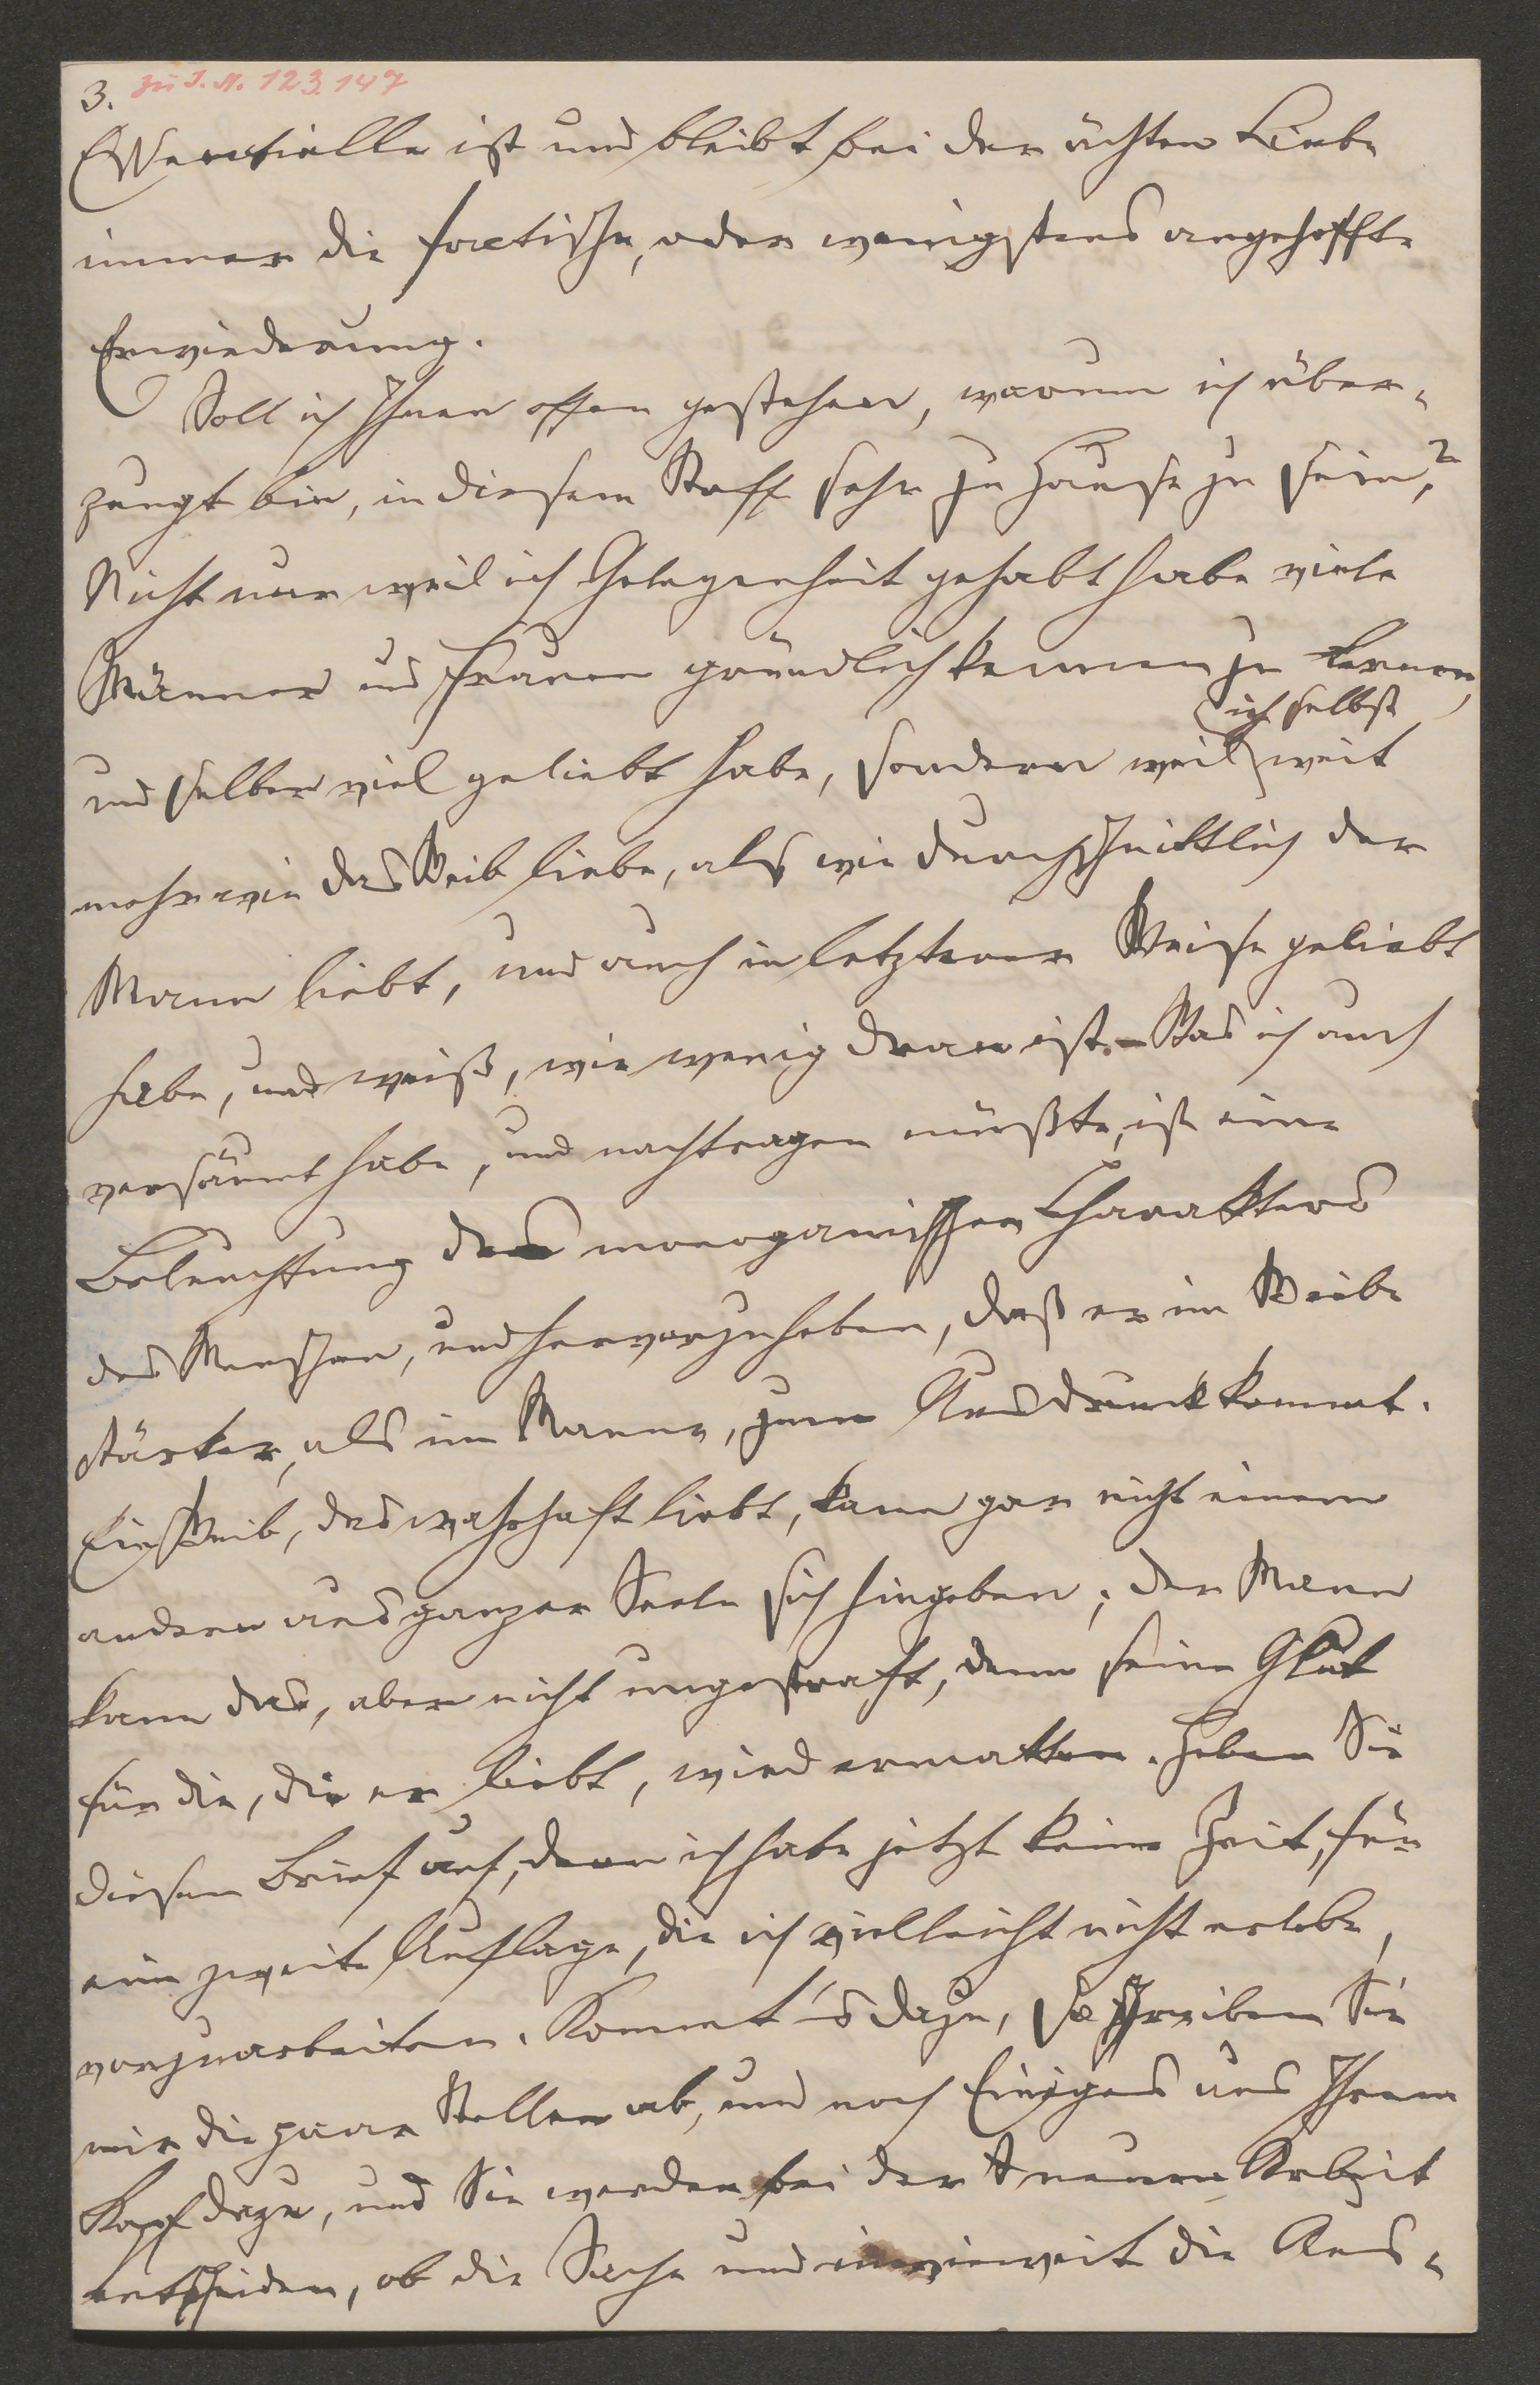 3. zu I. N. 123.147
Essentielle ist und bleibt bei der ächten Liebe
immer die factische, oder wenigstens angehoffte
Erwiederung.
Soll ich Ihnen offen gestehen, warum ich über-
zeugt bin, in diesem Stoff sehr zu Hause zu sein?
Nicht nur weil ich Gelegenheit gehabt habe viele
Männer und Frauen gründlich kennen zu lernen,
und selber viel geliebt habe, sondern weil ich selbst weit
mehr wie das Weib liebe, als wie durchschnittlich der
Mann liebt, und auch in letzterer Weise geliebt
habe, und weiß, wie wenig dran ist. – Was ich auch
versäumt habe, und nachtragen müßte, ist eine
Beleuchtung des monogamischen Charakters
des Menschen, und hervorzuheben, daß er im Weibe
stärker, als im Manne, zum Ausdruck kommt.
Ein Weib, das wahrhaft liebt, kann gar nicht einem
andern aus ganzer Seele sich hingeben; der Mann
kann das, aber nicht ungestraft, denn seine Glut
für die, die er liebt, wird ermatten. Heben Sie
diesen Brief auf, denn ich habe jetzt keine Zeit, für
eine zweite Auflage, die ich vielleicht nicht erlebe,
vorzuarbeiten. Kommt's dazu, so schreiben Sie
mir die paar Stellen ab, und noch Einiges aus Ihrem
Kopf dazu, und Sie werden bei der neuen Arbeit
entscheiden, ob die Sache und inwieweit die Aus-